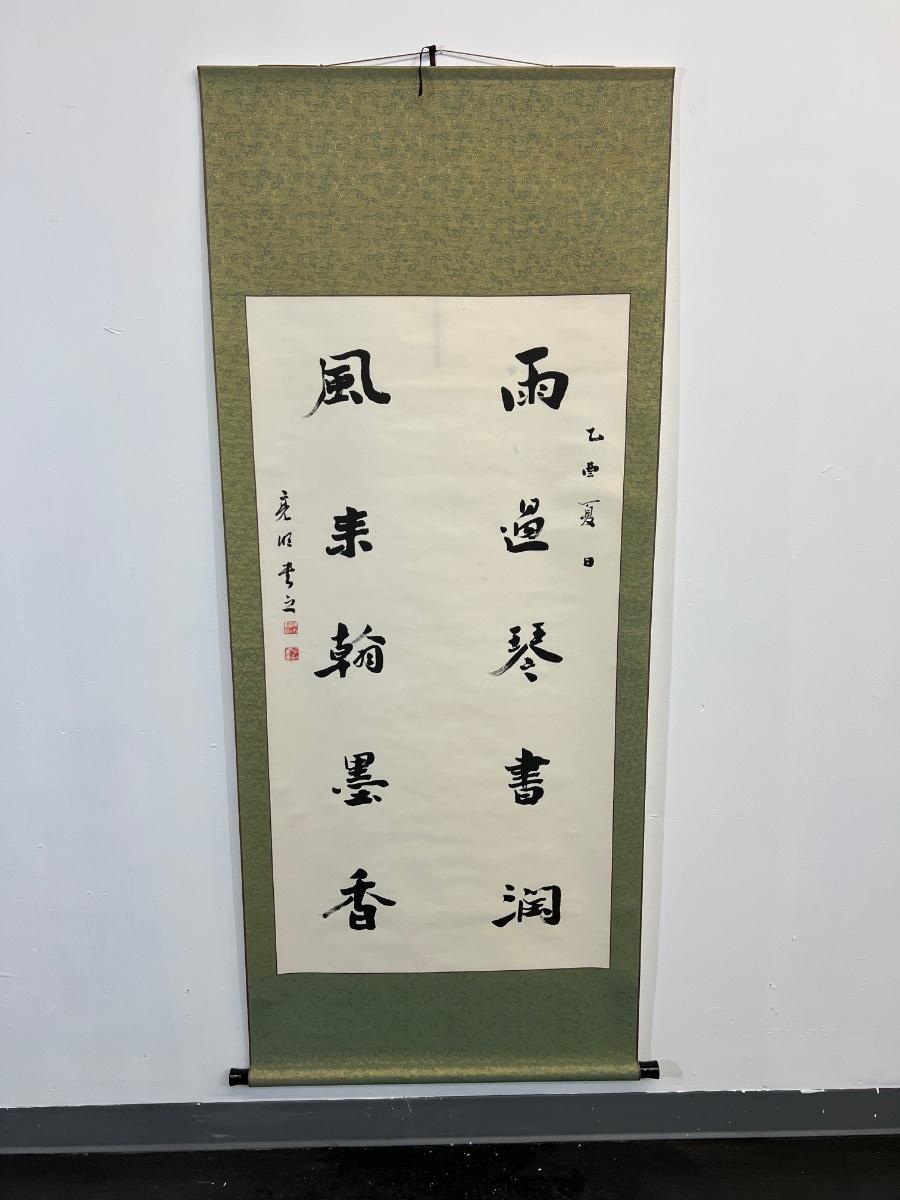 乙酉夏日
雨過琴書潤
風来翰墨香
亮明书之